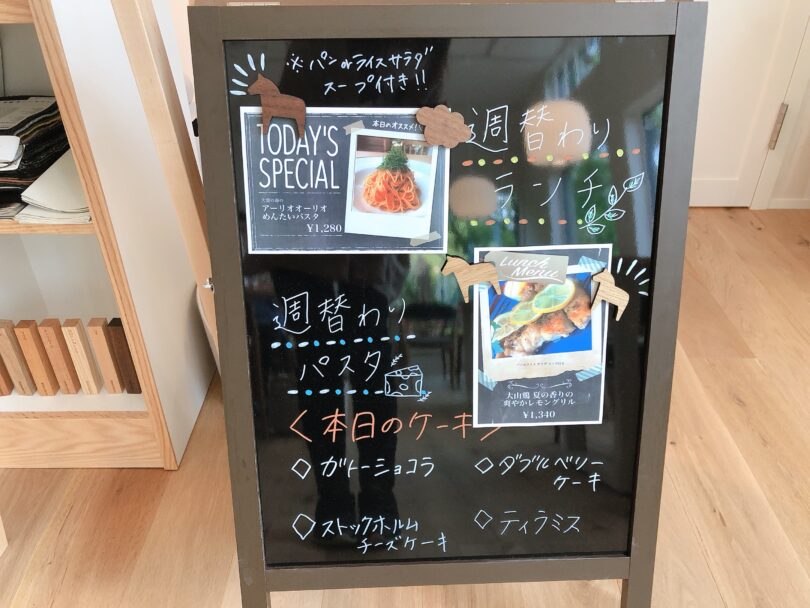 ※パンorライスサラダ
スープ付き!!
本日のオススメ!
TODAY'S
SPECIAL
大葉の香り
アーリオオーリオ
めんたいパスタ
¥1,280
週替わり
ランチ
Lunch
Menu
大山鶏 夏の香りの
爽やかレモングリル
¥1,340
週替わり
パスタ
<本日のケーキ>
◇ガトーショコラ
◇ダブルベリー
ケーキ
◇ストックホルム
チーズケーキ
◇ティラミス